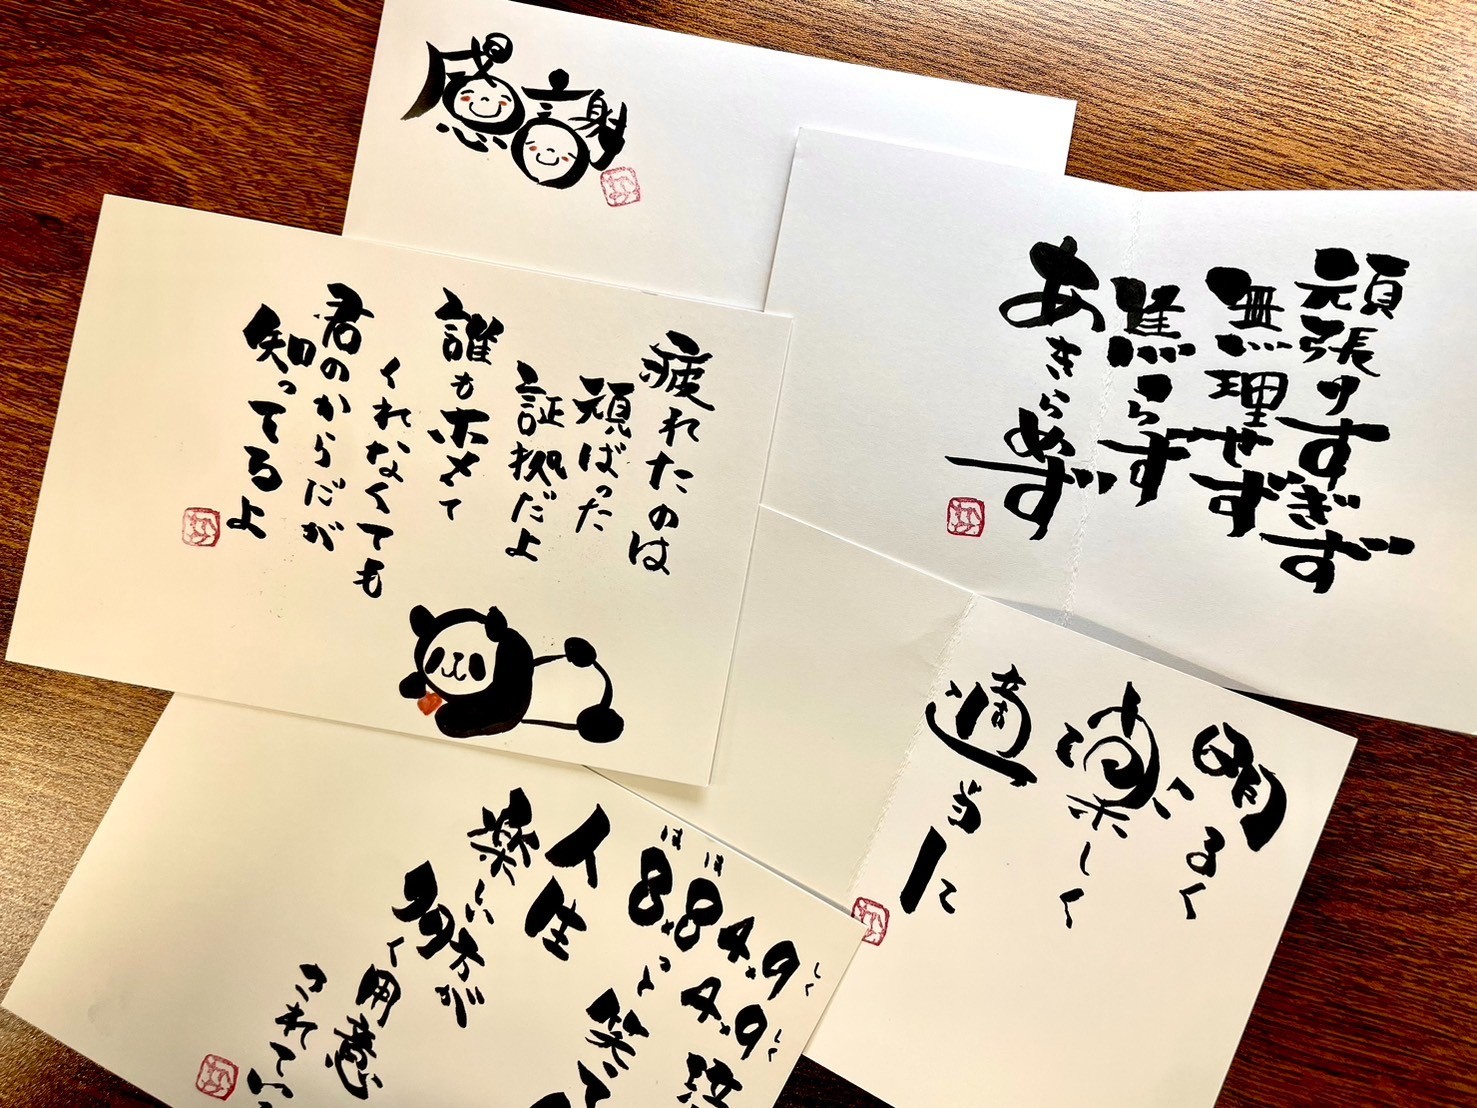 感謝
頑張りすぎず
無理せず
焦らず
あきらめず
疲れたのは
頑ばった
証拠だよ
誰もホメて
くれなくても
君のからだが
知ってるよ
明るく
楽しく
適当に
4.9 4.9
しく しく
8.8
はは
って笑って
人生
楽しい方が
多く用意
されてい